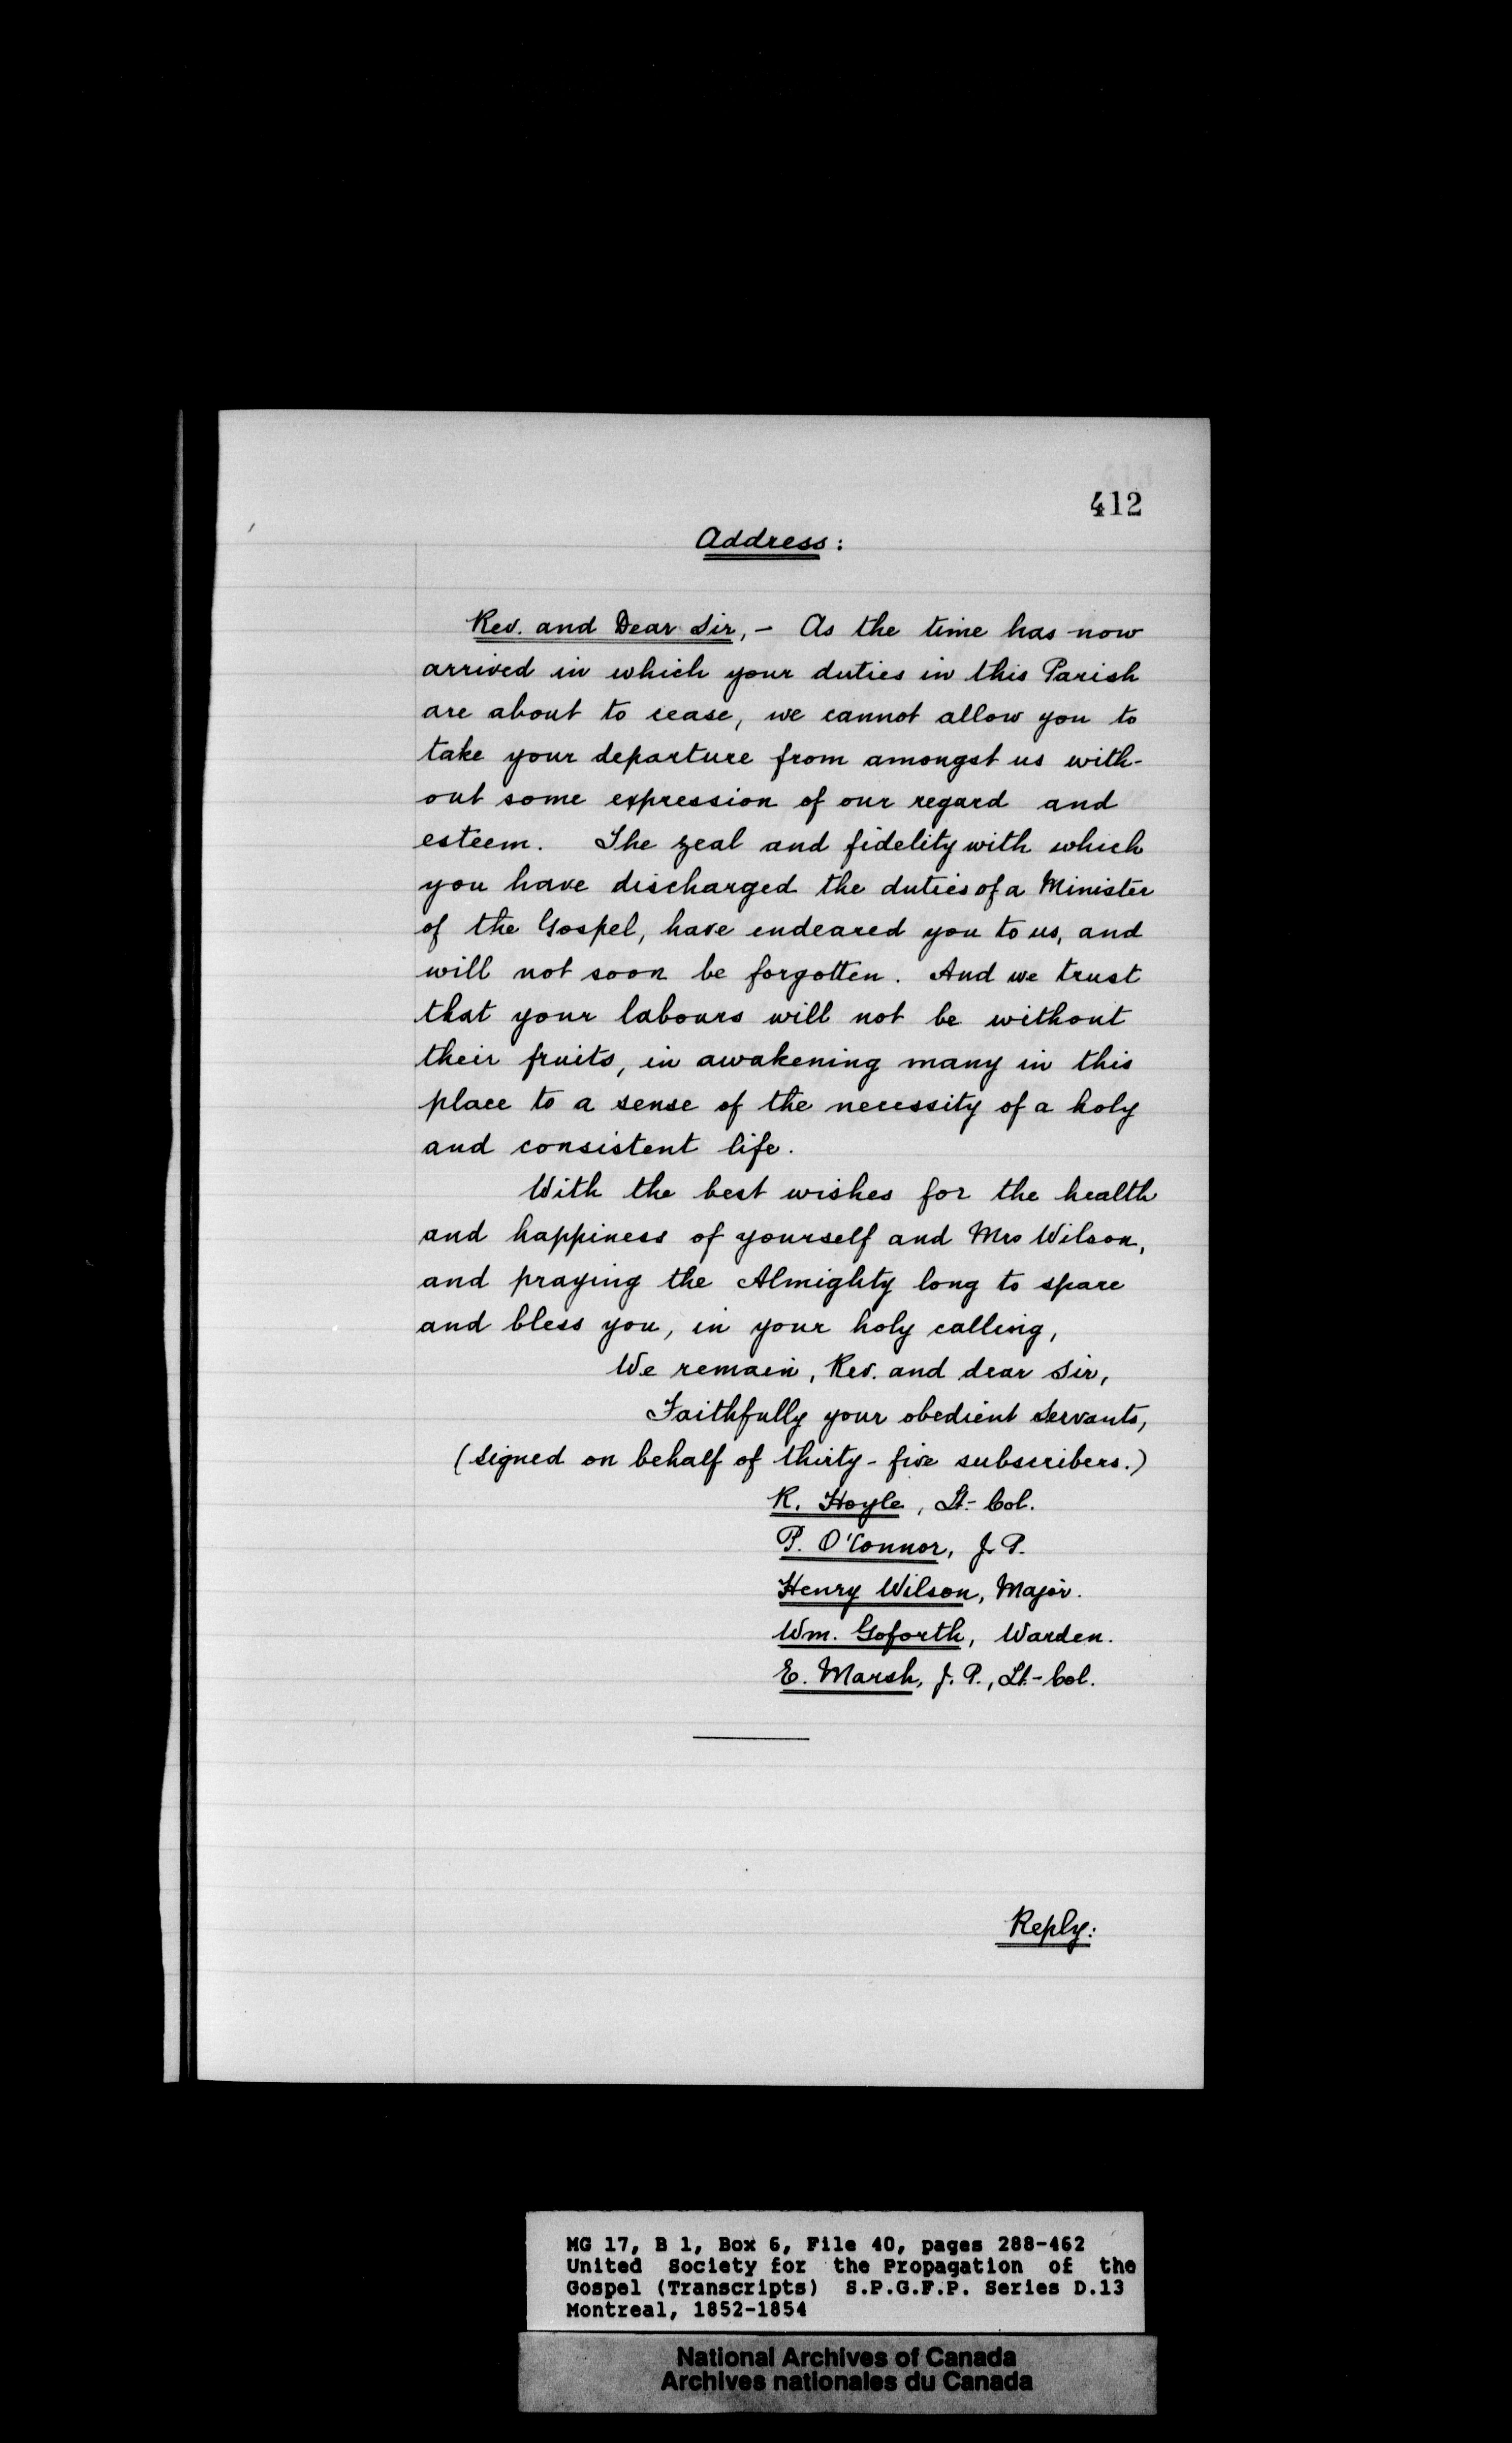 412
Address:
Rev. and Dear Sir, – As the time has now
arrived in which your duties in this Parish
are about to cease, we cannot allow you to
take your departure from amongst us with-
out some expression of our regard and
esteem. The zeal and fidelity with which
you have discharged the duties of a Minister
of the Gospel, have endeared you to us, and
will not soon be forgotten. And we trust
that your labours will not be without
their fruits, in awakening many in this
place to a sense of the necessity of a holy
and consistent life.
With the best wishes for the health
and happiness of yourself and Mrs Wilson,
and praying the Almighty long to spare
and bless you, in your holy calling,
We remain, Rev. and dear Sir,
Faithfully your obedient Servants,
(Signed on behalf of thirty-five subscribers.)
R. Hoyle, Lt-Col.
P. O'Connor, J. P.
Henry Wilson, Major.
Wm. Goforth, Warden.
E. Marsh, J. P., Lt-Col.
Reply:
MG 17, B 1, Box 6, File 40, pages 288-462
United Society for the Propagation of the
Gospel (Transcripts) S.P.G.F.P. Series D.13
Montreal, 1852-1854
National Archives of Canada
Archives nationales du Canada